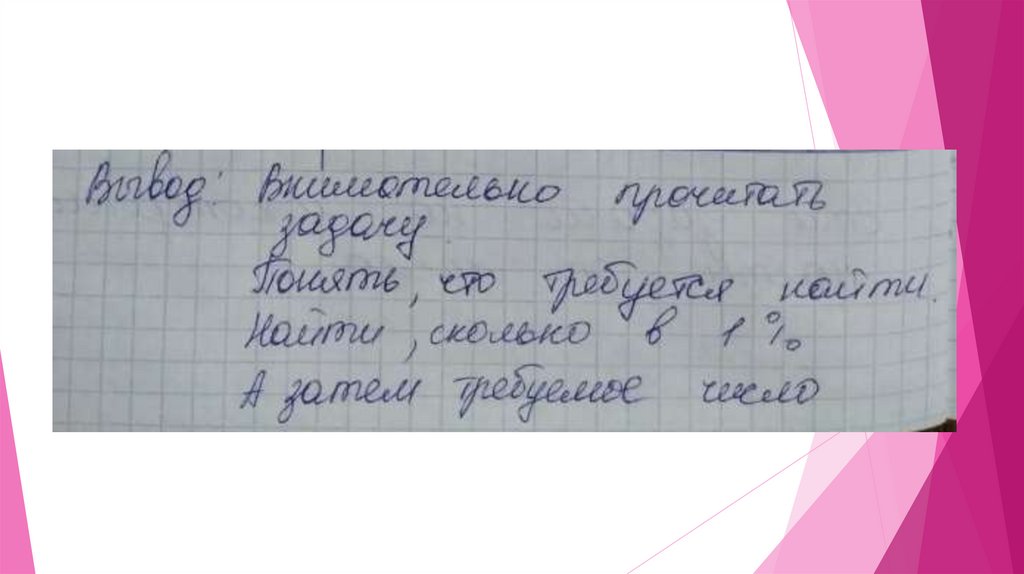 Вывод: Внимательно прочитать
задачу
Понять, что требуется найти.
Найти, сколько в 1%
А затем требуемое число